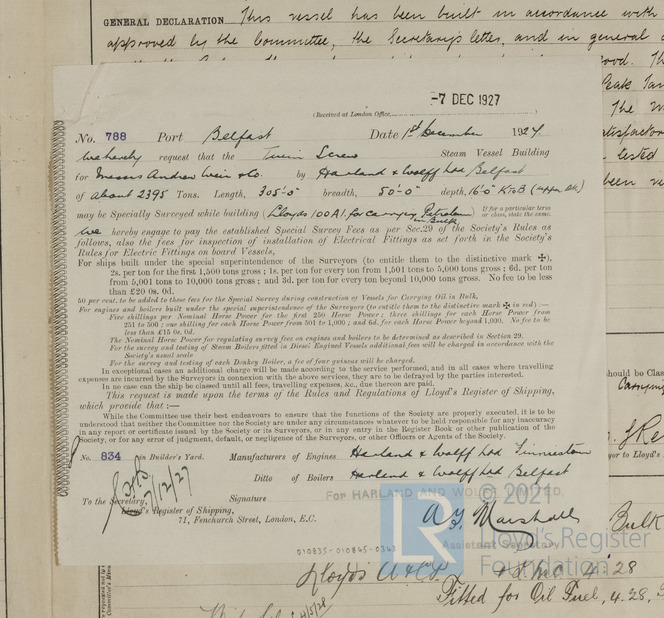 GENERAL DECLARATION This vessel has been built in accordance with
approved by the Committee, the Secretary's letter, and in general
-7 DEC 1927
(Received at London Office,
No. 788 Port Belfast Date 1st December 1927
We hereby request that the Twin Screw Steam Vessel Building
for Messrs Andrew Weir & Co. by Harland & Wolff Ltd Belfast
of about 2395 Tons. Length, 305'-0" breadth, 50'-0" depth, 16'-0"
may be Specially Surveyed while building (Lloyds 100A1. for carrying Petroleum in Bulk. If for a particular term or class, state the same.
We hereby engage to pay the established Special Survey Fees as per Sec.29 of the Society's Rules as
follows, also the fees for inspection of installation of Electrical Fittings as set forth in the Society's
Rules for Electric Fittings on board Vessels,
For ships built under the special superintendence of the Surveyors (to entitle them to the distinctive mark ✠),
2s. per ton for the first 1,500 tons gross; 1s. per ton for every ton from 1,501 tons to 5,000 tons gross; 6d. per ton
from 5,001 tons to 10,000 tons gross; and 3d. per ton for every ton beyond 10,000 tons gross. No fee to be less
than £20 0s. 0d.
50 per cent. to be added to these fees for the Special Survey during construction of Vessels for Carrying Oil in Bulk,
For engines and boilers built under the special superintendence of the Surveyors (to entitle them to the distinctive mark ✠ in red):—
Five shillings per Nominal Horse Power for the first 250 Horse Power; three shillings for each Horse Power from
251 to 500; one shilling for each Horse Power from 501 to 1,000; and 6d. for each Horse Power beyond 1,000. No fee to be
less than £15 0s. 0d.
The Nominal Horse Power for regulating survey fees on engines and boilers to be determined as described in Section 29.
For the survey and testing of Steam Boilers fitted in Diesel Engined Vessels additional fees will be charged in accordance with the
Society's usual scale
For the survey and testing of each Donkey Boiler, a fee of four guineas will be charged.
In exceptional cases an additional charge will be made according to the service performed, and in all cases where travelling
expenses are incurred by the Surveyors in connexion with the above services, they are to be defrayed by the parties interested.
In no case can the ship be classed until all fees, travelling expenses, &c., due thereon are paid.
This request is made upon the terms of the Rules and Regulations of Lloyd's Register of Shipping,
which provide that:—
While the Committee use their best endeavours to ensure that the functions of the Society are properly executed, it is to be
understood that neither the Committee nor the Society are under any circumstances whatever to be held responsible for any inaccuracy
in any report or certificate issued by the Society or its Surveyors, or in any entry in the Register Book or other publication of the
Society, or for any error of judgment, default, or negligence of the Surveyors, or other Officers or Agents of the Society.
No. 834 in Builder's Yard. Manufacturers of Engines Harland & Wolff Ltd Finnieston
Ditto of Boilers Harland & Wolff Ltd Belfast
7/12/27
For HARLAND AND WOLFF LIMITED
To the Secretary, Signature A. F. Marshall
Lloyd's Register of Shipping, Assistant Secretary
71, Fenchurch Street, London, E.C.
© 2021
LR Lloyd's Register
Foundation
010835-010845-0343
Bulk
Lloyds A & C.P. 4.28
Fitted for Oil Fuel, 4.28,